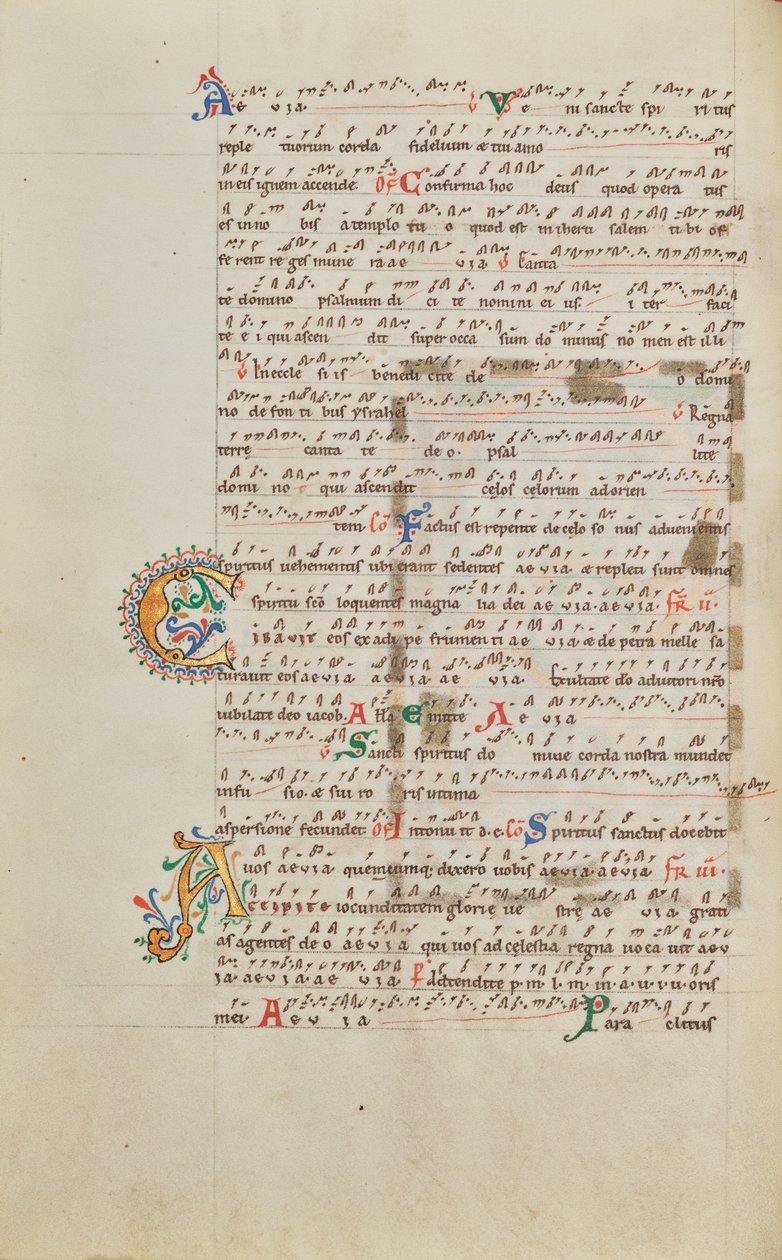 Ae vıa. v Ve ni sancte spi ri tus
reple tuorum corda fidelium & tui amo ris
in eis ignem accende. OF Confirma hoc deus quod opera tus
es in no bis a templo tu o quod est in iheru salem ti bi of
fe rent re ges mune ra ae vıa v Canta
te domino psalmum di ci te nomini ei us. i ter faci
te e i qui ascen dit super occa sum do minus no men est illi
v In eccle si is bēnedi cite de ō domi
no de fon ti bus ysrahel v Regna
terrę canta te de o. psal lite
domi no qui ascendit cęlos cęlorum ad orien
tem Cō Factus est repente de celo so nus aduenientis
spiritus uehementis ubi erant sedentes aevıa & repleti sunt omnes
spiritu scō loquentes magna lia dei aevıa. aevıa. FR II.
CIBAVIT eos ex adi pe frumen ti ae vıa & de petra melle sa
turauit eos aevıa. aevıa. ae vıa. Exultate dō adiutori nrō
iubilate deo iacob. A Lla Emitte Ae vıa
v Sancti spiritus do mine corda nostra mundet
infu sio. & sui ro ris intima
aspersione fecundet OF Intonu it d. e. Cō Spiritus sanctus docebit
uos aevıa quemcumq; dixero uobis aevıa. aevıa. FR III.
ACCIPITE iocunditatem glorię ue strę ae vıa grati
as agentes de o aevıa qui uos ad cęlestia regna uoca uit aev
ıa. aevıa. ae vıa. P Adtendite p. m. l. m. in. a. u. r. u. oris
mei. Ae v ıa Para clitus